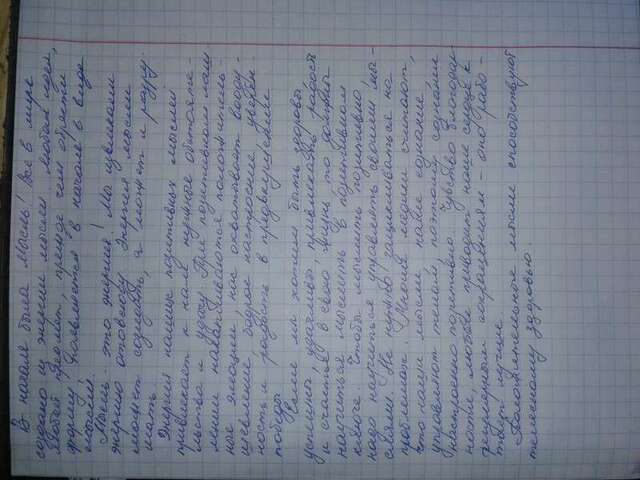 В начале была Мысль! Всё в мире
создано из энергии мысли. Любая идея,
любой предмет, прежде чем обрести
форму, появляется в начале в виде
мысли.
Мысль - это энергия! Мы извлекаем
энергию отовсюду. Энергия мысли
может созидать, а может и разру-
шать.
Энергия наших позитивных мыслей
привлекает к нам нужные обстояте-
льства и удачу. При позитивном мыш-
лении накапливаются положитель-
ные эмоции, нас охватывает вооду-
шевление, бодрое настроение, уверен-
ность и радость в предвкушении
победы.
Если мы хотим быть здоровы
успешны, удачливы, привлекать радость
и счастье в свою жизнь, то должны
научиться мыслить в позитивном
ключе. Чтобы мыслить позитивно,
надо научиться управлять своими мы-
слями. Не нужно зацикливаться на
проблемах. Многие медики считают,
что наши мысли, наше сознание
управляют телом, поэтому сознание
настроено позитивно. Чувство благодар-
ности, любви приводит наше сердце к
регулярным сокращениям - оно рабо-
тает лучше.
Положительные мысли способствуют
телесному здоровью.